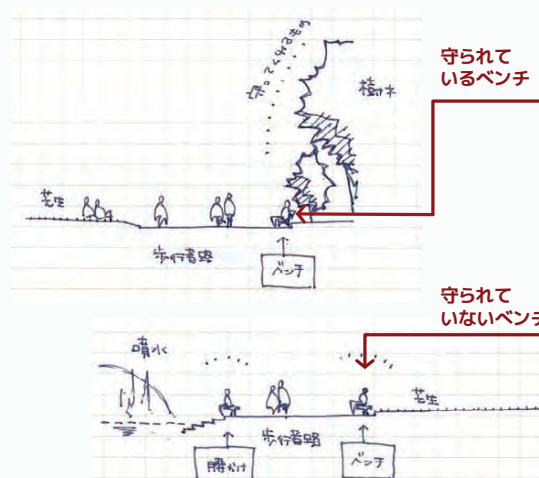 守ってくれるもの
樹木
守られて
いるベンチ
芝生
歩行者路
ベンチ
守られて
いないベンチ
噴水
芝生
歩行者路
腰かけ
ベンチ